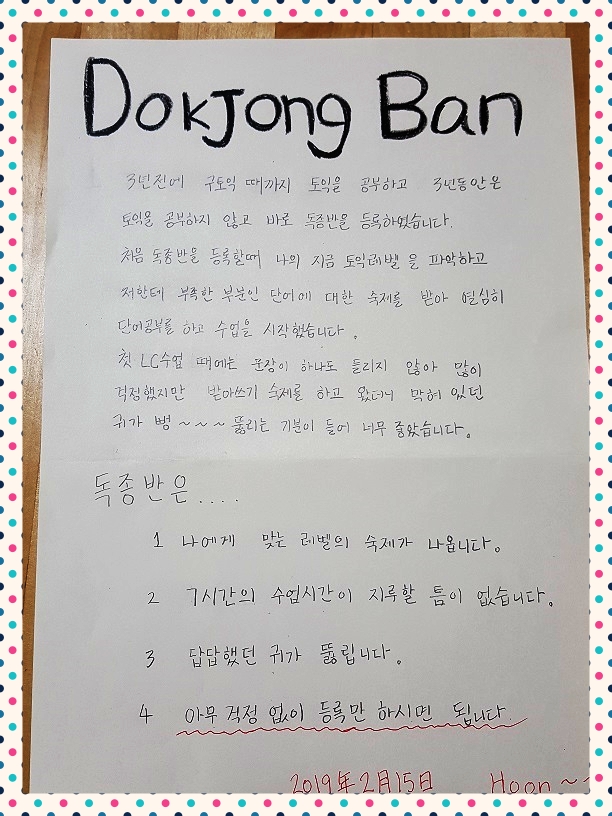 DokJong Ban
3년전에 구토익 때까지 토익을 공부하고 3년동안은
토익을 공부하지 않고 바로 독종반을 등록하였습니다.
처음 독종반을 등록할때 나의 지금 토익레벨을 파악하고
저한테 부족한 부분인 단어에 대한 숙제를 받아 열심히
단어공부를 하고 수업을 시작했습니다.
첫 LC수업 때에는 문장이 하나도 들리지 않아 많이
걱정했지만 받아쓰기 숙제를 하고 왔더니 막혀 있던
귀가 뻥~~~뚫리는 기분이 들어 너무 좋았습니다.
독종반은....
1 나에게 맞는 레벨의 숙제가 나옵니다.
2 7시간의 수업시간이 지루할 틈이 없습니다.
3 답답했던 귀가 뚫립니다.
4 아무 걱정 없이 등록만 하시면 됩니다.
2019年2月15日 Hoon~~